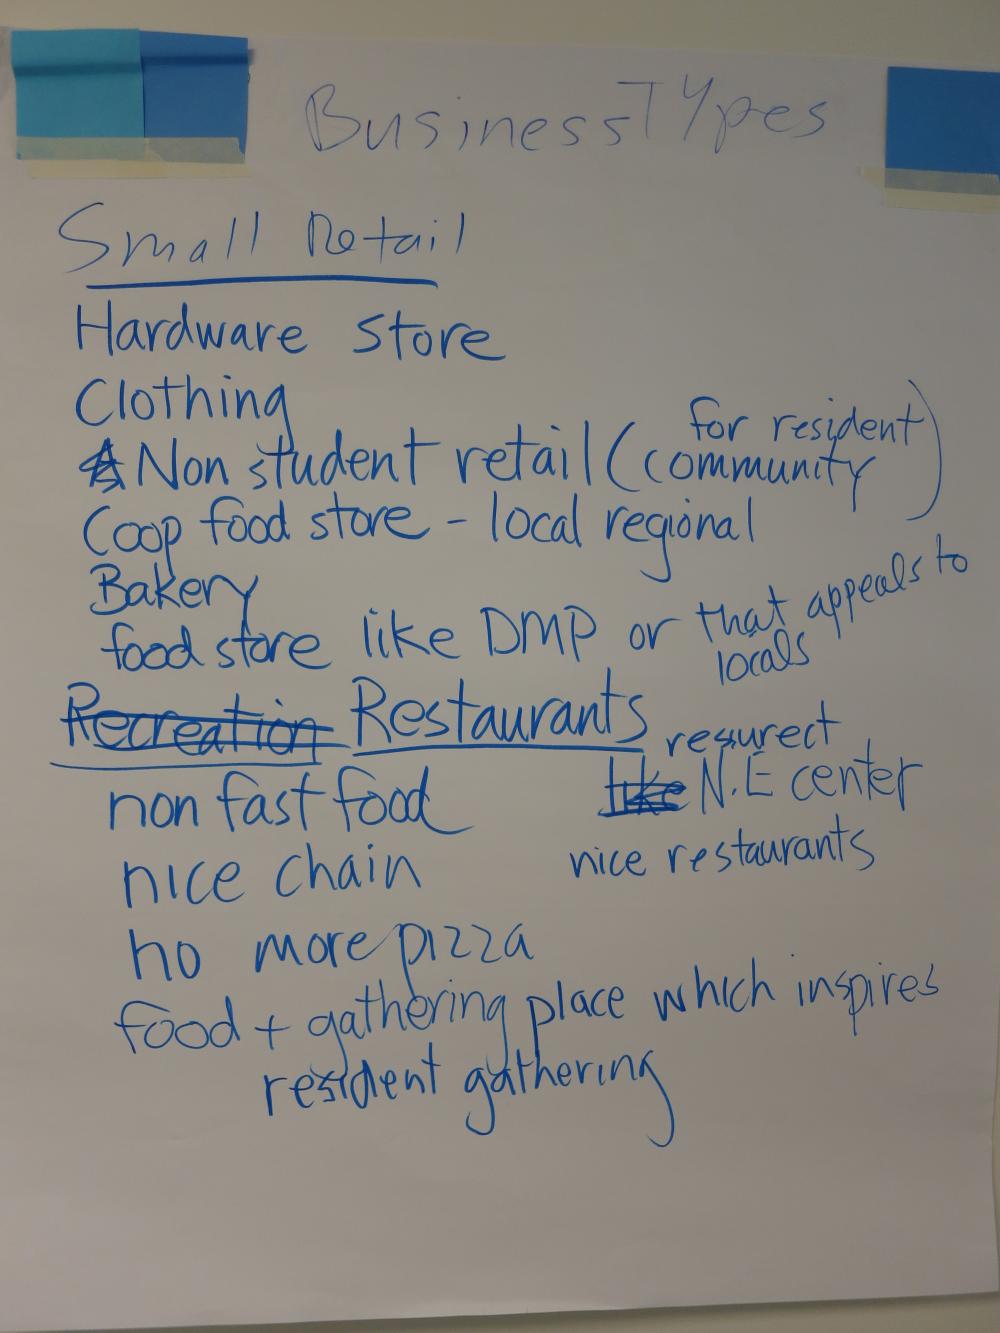 Business Types
Small Retail
Hardware store
Clothing
Non student retail (for resident community)
Coop food store - local regional
Bakery
food store like DMP or that appeals to
locals
Recreation Restaurants
resurect
non fast food like N.E center
nice chain nice restaurants
no more pizza
food + gathering place which inspires
resident gathering